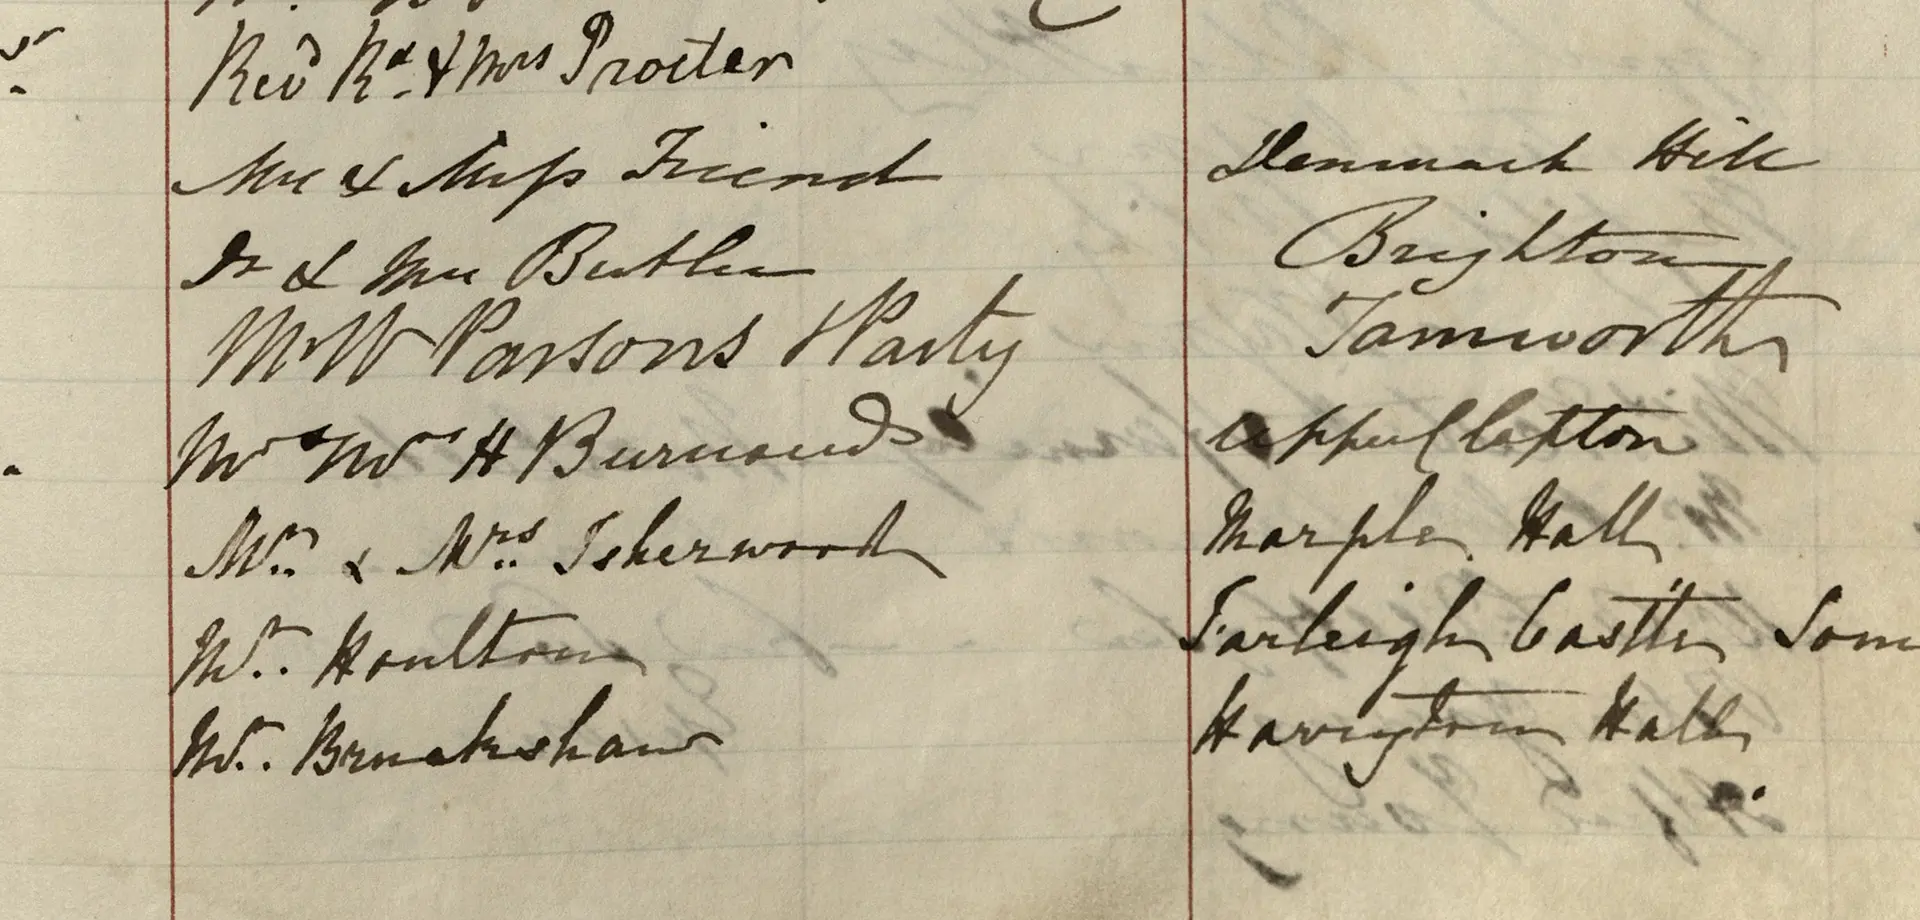 Revd Rd. & Mrs Procter
Mrs & Miss Friend Denmark Hill
Dr & Mrs Butler Brighton
Mr W Parsons & Party Tamworth
Mr & Mrs H Burnand Upper Clapton
Mr. & Mrs. Isherwood Marple Hall
Mr. Houlton Farleigh Castle Som
Mr. Bruckshaw Harrington Hall